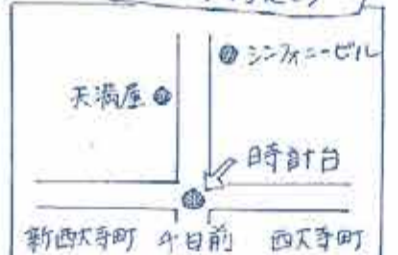 シンフォニービル
天満屋
時計台
新西大寺町 千日前 西大寺町